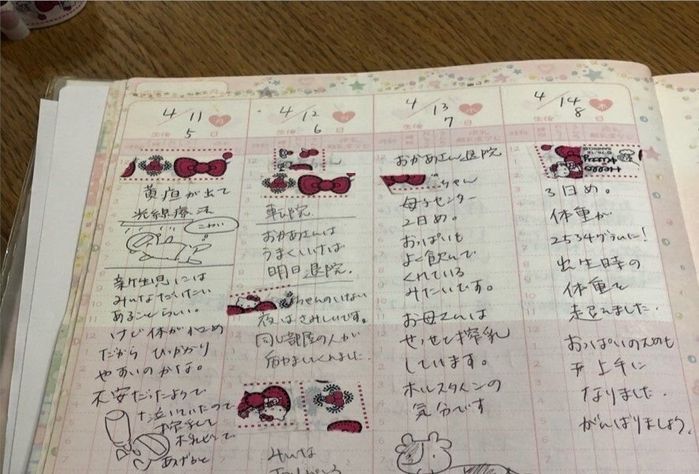 4/11
生後 5 日
黄疸が出て
光線療法
こわい
新生児には
みんなだいたい
あることらしい。
けど体が
だから ひっかかり
やすいのかな。
不安だったようで
泣いていたので
あげかと
4/12
生後 6 日
転院
おかあさんは
うまくいけば
明日退院。
夜はさみしいです。
同じ部屋の人が
みんな
4/13
生後 7 日
おかあさん退院
ちゃん
母子センター
2日め。
おっぱいも
よく飲んで
くれている
みたいです。
お母さんは
せっせと搾乳
しています。
ホルスタインの
気分です
4/14
生後 8 日
3日め。
体重が
2534グラムに!
出生時の
体重を
超えました。
おっぱいのむのも
上手に
なりました
がんばりましょう。